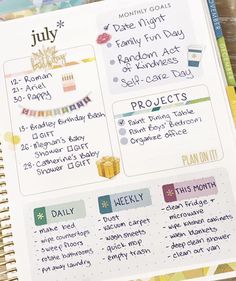 july*
birthday
12- Roman
21- Ariel
30- Pappy
13- Bradley Birthday Bash
GIFT
26- Meghan's Baby
Shower GIFT
29- Catherine's Baby
Shower GIFT
MONTHLY GOALS
Date Night
Family Fun Day
Random Act
of Kindness
Self-Care Day
PROJECTS
Paint Dining Table
Paint Boys' Bedroom
Organize office
PLAN ON IT!
DAILY
- make bed
- wipe countertops
- sweep floors
- rotate bathrooms
- put away laundry
WEEKLY
- Dust
- vacuum carpet
- wash sheets
- quick mop
- empty trash
THIS MONTH
- clean fridge +
microwave
- wipe kitchen cabinets
- wash blankets
- deep clean shower
- clean out van